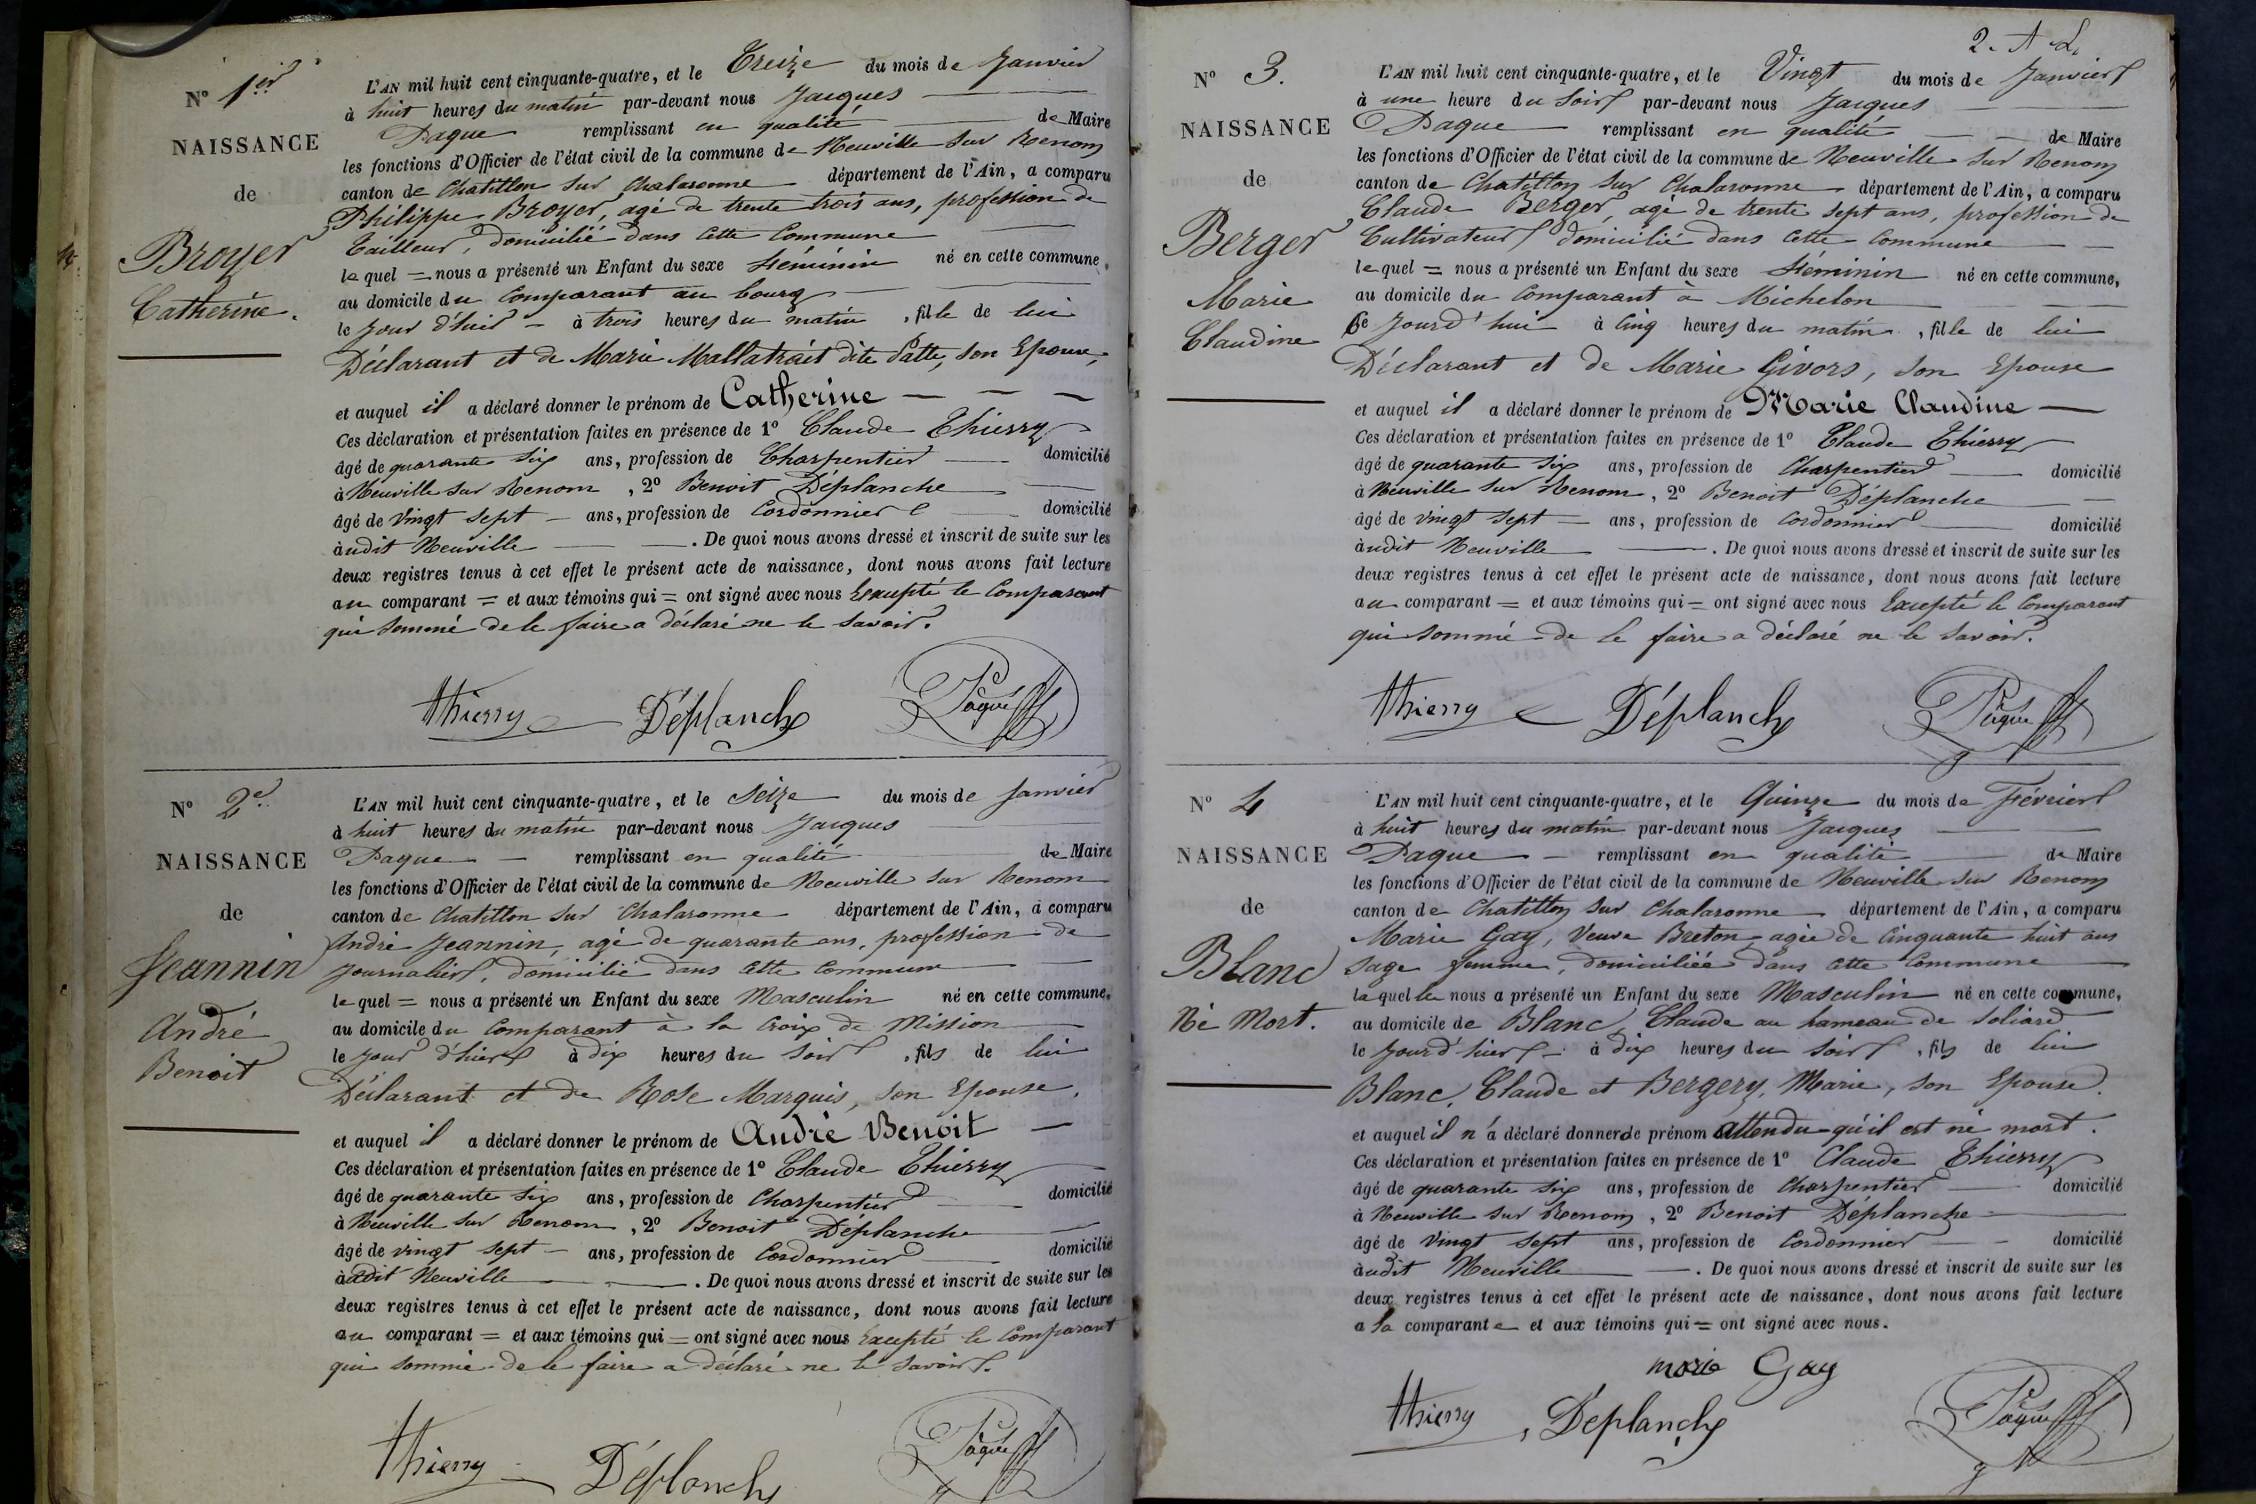 N° 1er
NAISSANCE
de
Broyer
Catherine.
L'AN mil huit cent cinquante-quatre, et le Treize du mois de Janvier
à huit heures du matin par-devant nous Jacques
Paque remplissant en qualité de Maire
les fonctions d'Officier de l'état civil de la commune de Neuville sur Renom
canton de Chatillon sur Chalaronne département de l'Ain, a comparu
Philippe Broyer, agé de trente trois ans, profession de
Tailleur, domicilié dans cette Commune
lequel = nous a présenté un Enfant du sexe féminin né en cette commune,
au domicile du Comparant au bourg
le jour d'hier à trois heures du matin, fille de lui
Déclarant et de Marie Mallatrait dite Patte, son Epouse,
et auquel il a déclaré donner le prénom de Catherine
Ces déclaration et présentation faites en présence de 1° Claude Thierry
âgé de quarante six ans, profession de Charpentier domicilié
à Neuville sur Renom, 2° Benoit Déplanche
âgé de vingt sept ans, profession de Cordonnier domicilié
àudit Neuville. De quoi nous avons dressé et inscrit de suite sur les
deux registres tenus à cet effet le présent acte de naissance, dont nous avons fait lecture
au comparant = et aux témoins qui = ont signé avec nous Excepté le Comparant
qui sommé de le faire a déclaré ne le savoir.
Thierry Déplanche Pâque
N° 2e
NAISSANCE
de
Jeannin
André
Benoit
L'AN mil huit cent cinquante-quatre, et le Seize du mois de Janvier
à huit heures du matin par-devant nous Jacques
Paque remplissant en qualité de Maire
les fonctions d'Officier de l'état civil de la commune de Neuville sur Renom
canton de Chatillon sur Chalaronne département de l'Ain, a comparu
André Jeannin, agé de quarante ans, profession de
Journalier, domicilié dans cette Commune
lequel = nous a présenté un Enfant du sexe Masculin né en cette commune,
au domicile du Comparant à la Croix de Mission
le jour d'hier à dix heures du soir, fils de lui
Déclarant et de Rose Marquis, son Epouse,
et auquel il a déclaré donner le prénom de André Benoit
Ces déclaration et présentation faites en présence de 1° Claude Thierry
âgé de quarante six ans, profession de Charpentier domicilié
à Neuville sur Renom, 2° Benoit Déplanche
âgé de vingt sept ans, profession de Cordonnier domicilié
àudit Neuville. De quoi nous avons dressé et inscrit de suite sur les
deux registres tenus à cet effet le présent acte de naissance, dont nous avons fait lecture
au comparant = et aux témoins qui = ont signé avec nous Excepté le Comparant
qui sommé de le faire a déclaré ne le savoir.
Thierry Déplanche Pâque
2.
N° 3.
NAISSANCE
de
Berger
Marie
Claudine
L'AN mil huit cent cinquante-quatre, et le Vingt du mois de Janvier
à une heure du soir par-devant nous Jacques
Paque remplissant en qualité de Maire
les fonctions d'Officier de l'état civil de la commune de Neuville sur Renom
canton de Chatillon sur Chalaronne département de l'Ain, a comparu
Claude Berger, agé de trente sept ans, profession de
Cultivateur domicilié dans cette Commune
lequel = nous a présenté un Enfant du sexe féminin né en cette commune,
au domicile du Comparant à Michelon
Ce jourd'hui à Cinq heures du matin, fille de lui
Déclarant et de Marie Givors, son Epouse
et auquel il a déclaré donner le prénom de Marie Claudine
Ces déclaration et présentation faites en présence de 1° Claude Thierry
âgé de quarante six ans, profession de Charpentier domicilié
à Neuville sur Renom, 2° Benoit Déplanche
âgé de vingt sept ans, profession de Cordonnier domicilié
àudit Neuville. De quoi nous avons dressé et inscrit de suite sur les
deux registres tenus à cet effet le présent acte de naissance, dont nous avons fait lecture
au comparant = et aux témoins qui = ont signé avec nous Excepté le Comparant
qui sommé de le faire a déclaré ne le savoir.
Thierry Déplanche Pâque
N° 4
NAISSANCE
de
Blanc
Né Mort.
L'AN mil huit cent cinquante-quatre, et le Quinze du mois de Février
à huit heures du matin par-devant nous Jacques
Paque remplissant en qualité de Maire
les fonctions d'Officier de l'état civil de la commune de Neuville sur Renom
canton de Chatillon sur Chalaronne département de l'Ain, a comparu
Marie Gay, Veuve Breton, agée de Cinquante huit ans
Sage femme, domiciliée dans cette Commune
laquelle nous a présenté un Enfant du sexe Masculin né en cette commune,
au domicile de Blanc, Claude au hameau de Soliard
le jour d'hier à dix heures du soir, fils de lui
Blanc, Claude et Bergery, Marie, son Epouse.
et auquel il n'a déclaré donner de prénom attendu qu'il est né mort.
Ces déclaration et présentation faites en présence de 1° Claude Thierry
âgé de quarante six ans, profession de Charpentier domicilié
à Neuville sur Renom, 2° Benoit Déplanche
âgé de Vingt sept ans, profession de Cordonnier domicilié
àudit Neuville. De quoi nous avons dressé et inscrit de suite sur les
deux registres tenus à cet effet le présent acte de naissance, dont nous avons fait lecture
a la comparante et aux témoins qui = ont signé avec nous.
marie Gay
Thierry, Déplanche Pâque